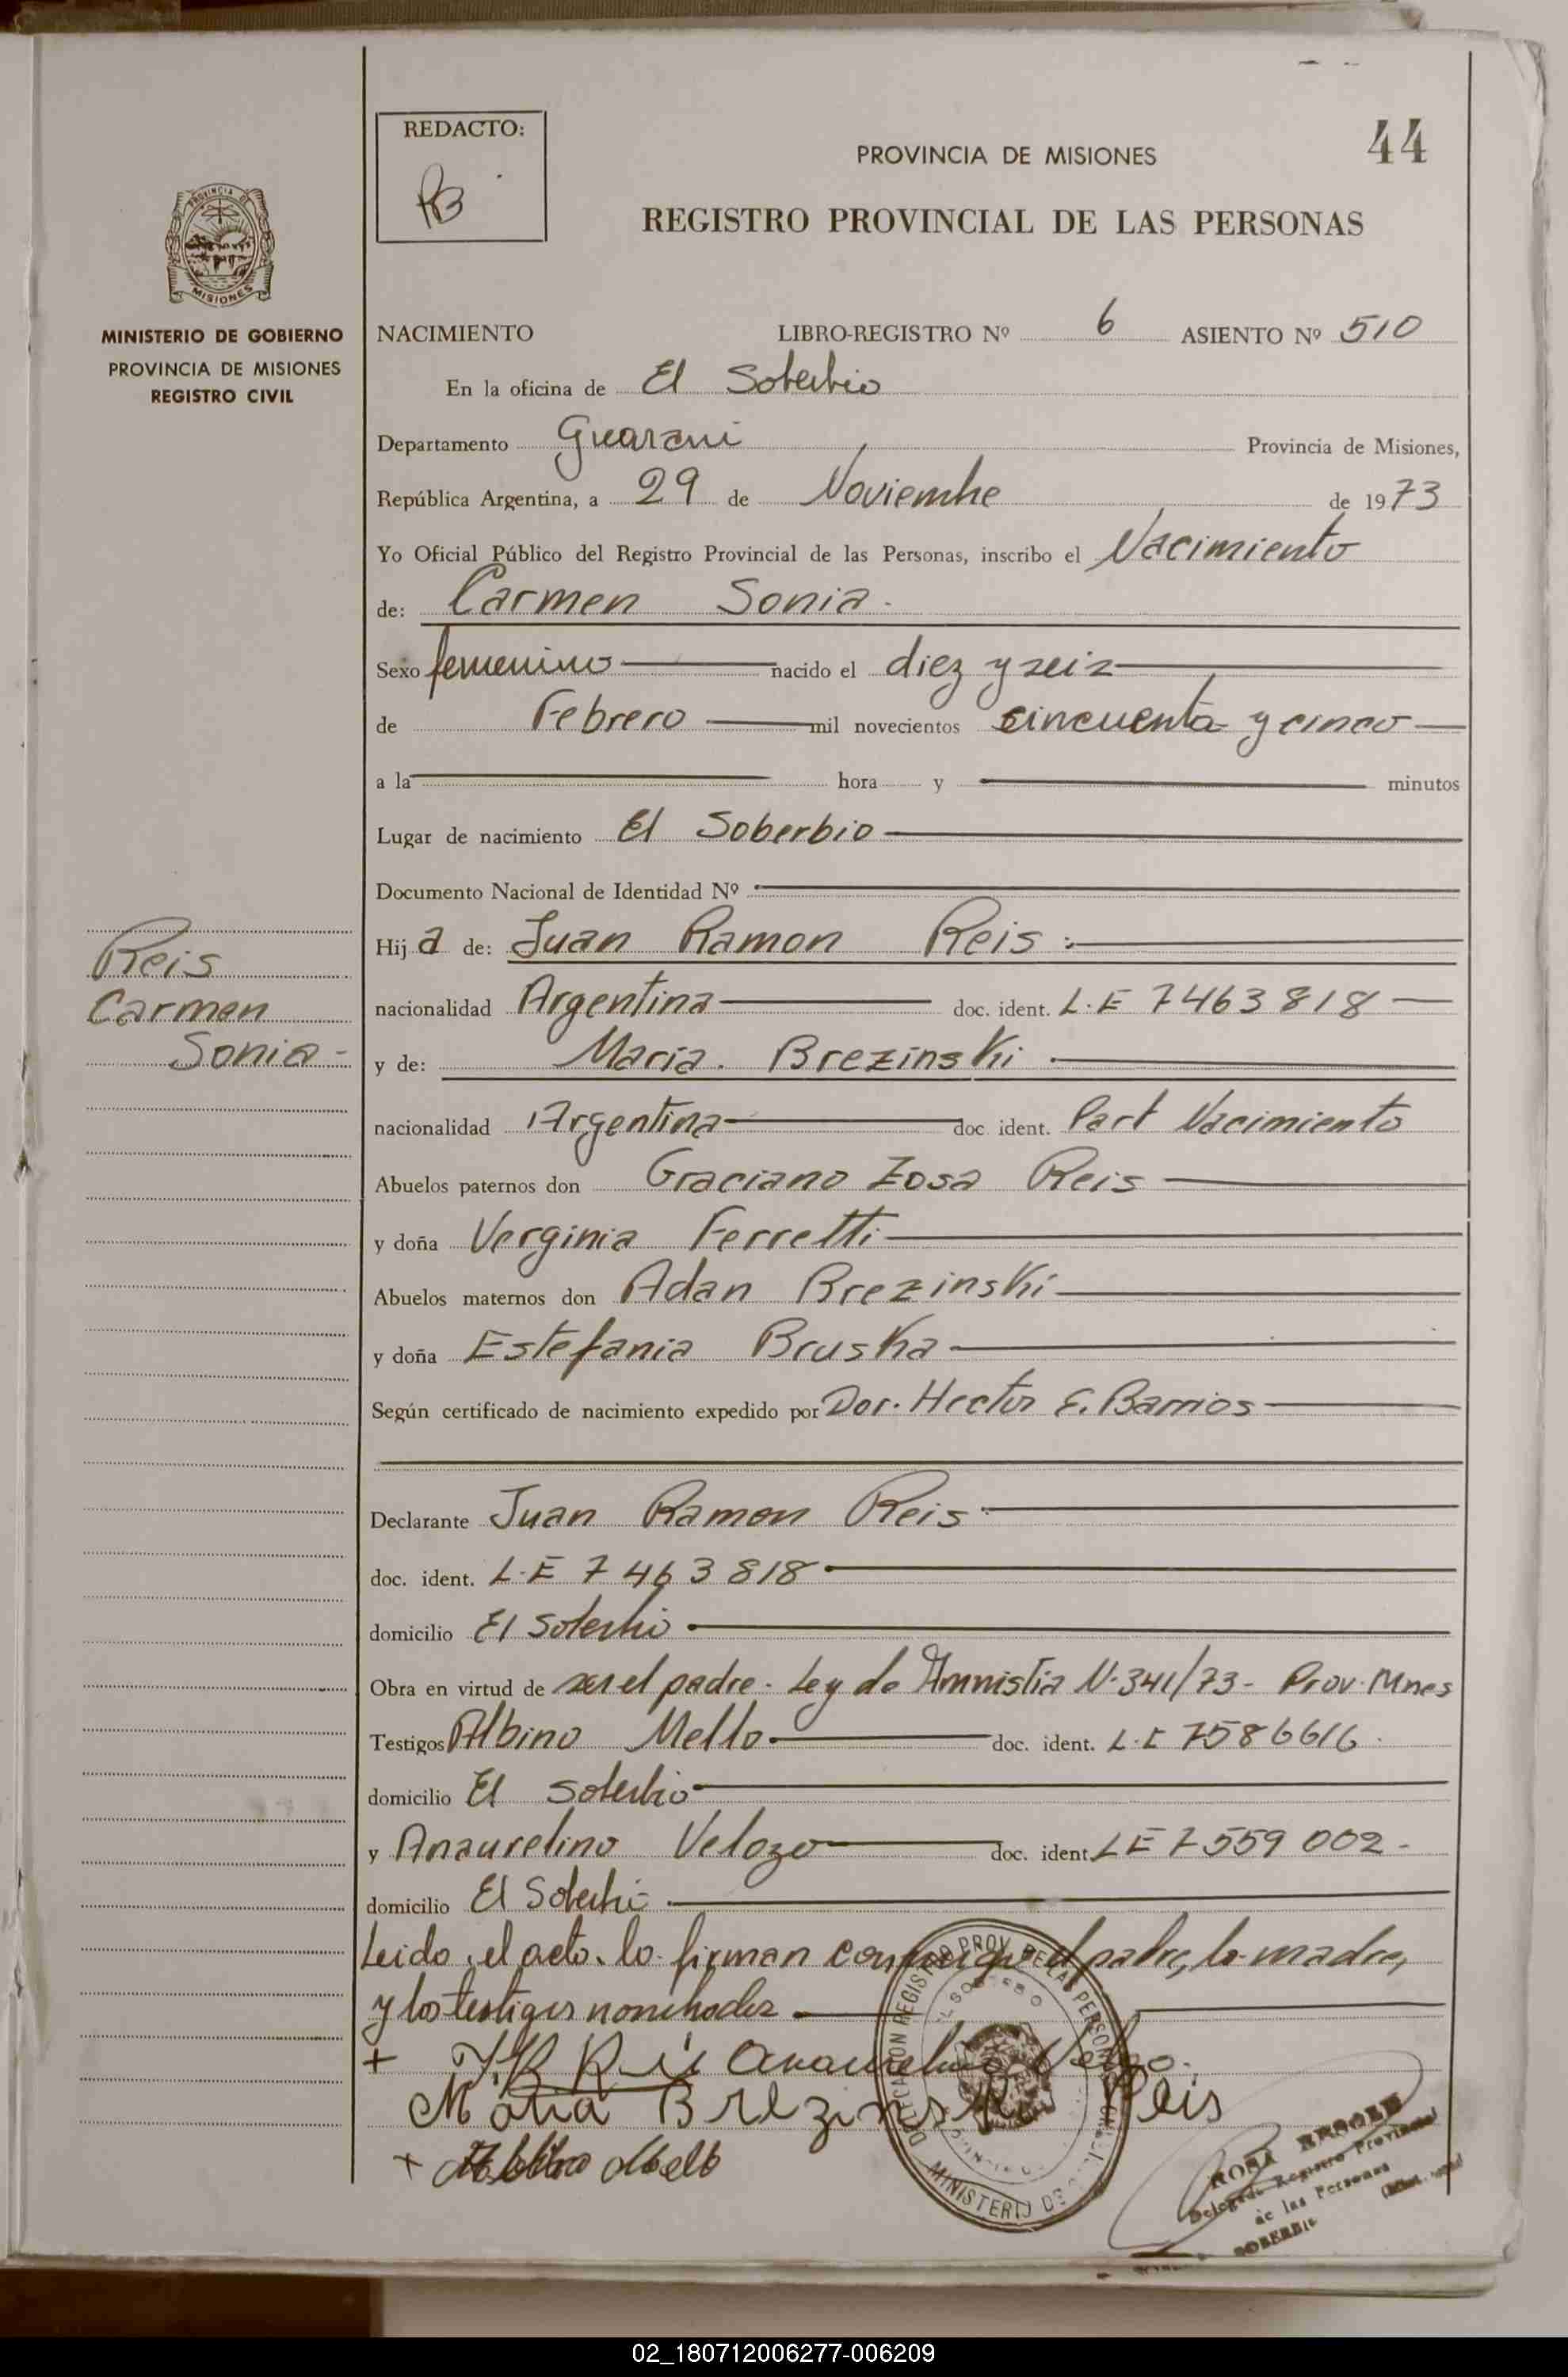 44
REDACTO:
PROVINCIA DE MISIONES
REGISTRO PROVINCIAL DE LAS PERSONAS
PROVINCIA DE
MISIONES
MINISTERIO DE GOBIERNO
PROVINCIA DE MISIONES
REGISTRO CIVIL
NACIMIENTO LIBRO-REGISTRO Nº 6 ASIENTO Nº 510
En la oficina de El Soberbio
Departamento Guarani Provincia de Misiones,
República Argentina, a 29 de Noviembre de 1973
Yo Oficial Público del Registro Provincial de las Personas, inscribo el Nacimiento
de: Carmen Sonia.
Sexo femenino nacido el diez y seis
de Febrero mil novecientos cincuenta y cinco
a la hora y minutos
Lugar de nacimiento El Soberbio
Documento Nacional de Identidad Nº
Hija de: Juan Ramon Reis
Reis
Carmen
Sonia-
nacionalidad Argentina doc. ident. L.E 7463818
y de: Maria. Brezinski
nacionalidad Argentina doc. ident. Part Nacimiento
Abuelos paternos don Graciano Zosa Reis
y doña Verginia Ferretti
Abuelos maternos don Adan Brezinski
y doña Estefania Bruska
Según certificado de nacimiento expedido por Dor. Hector E. Barrios
Declarante Juan Ramon Reis
doc. ident. L.E 7463818
domicilio El Soberbio
Obra en virtud de ser el padre. Ley de Amnistia N.341/73- Prov. Mnes
Testigos Albino Mello doc. ident. L.E 7586616.
domicilio El Soberbio
y Anaurelino Velozo doc. ident. LE 7559002-
domicilio El Soberbio
Leido el acto, lo firman conmigo el padre, la madre,
y los testigos nombrados
+ J.R Reis Anaurelino Velozo.
Maria Brezinski Reis
+ Albino Mello
DIRECCION REGISTRO PROV. DE LAS PERSONAS
MINISTERIO DE
Delegada Registro Provincial
de las Personas
SOBERBIO
02_180712006277-006209